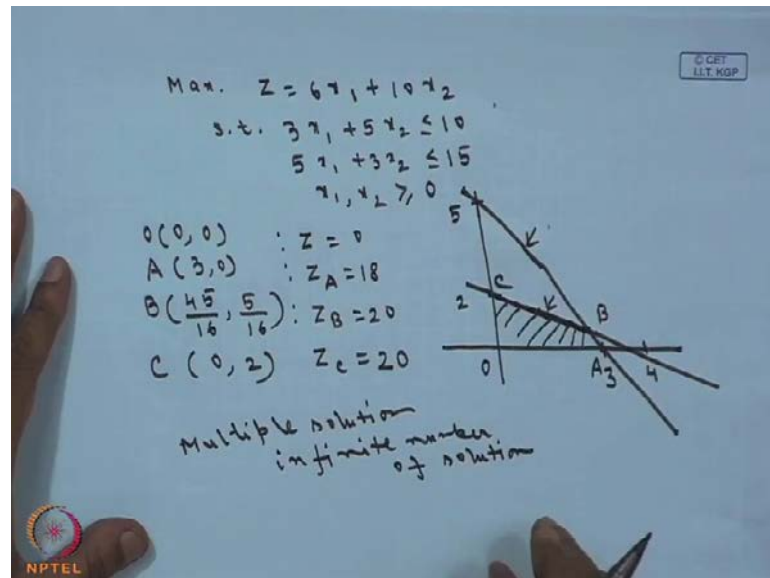 © CET
I.I.T. KGP
Max. Z = 6x₁ + 10x₂
s.t. 3x₁ + 5x₂ ≤ 10
5x₁ + 3x₂ ≤ 15
x₁, x₂ ≥ 0
O(0,0) : Z = 0
A(3,0) : Z_A = 18
B(45/16, 5/16) : Z_B = 20
C (0,2) Z_C = 20
5
C
2
B
O
A 3
4
Multiple solution
infinite number
of solution
NPTEL